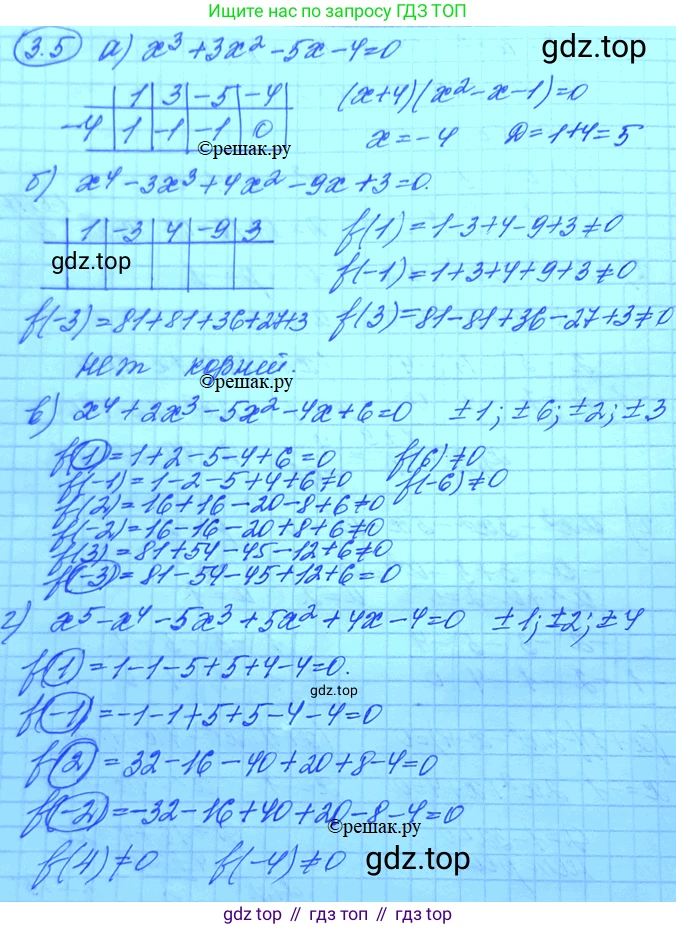 Ищите ответы по запросу ГДЗ ТОП
3.5 а) x³+3x²-5x-4=0
gdz.top
1 3 -5 -4
-4 1 -1 -1 0
(x+4)(x²-x-1)=0
x=-4 D=1+4=5
©решак.ру
б) x⁴-3x³+4x²-9x+3=0.
1 -3 4 -9 3
gdz.top
f(1)=1-3+4-9+3≠0
f(-1)=1+3+4+9+3≠0
f(-3)=81+81+36+27+3 f(3)=81-81+36-27+3≠0
нет корней.
©решак.ру
в) x⁴+2x³-5x²-4x+6=0 ±1; ±6; ±2; ±3
f(1)=1+2-5-4+6=0 f(6)≠0
f(-1)=1-2-5+4+6≠0 f(-6)≠0
f(2)=16+16-20-8+6≠0
f(-2)=16-16-20+8+6≠0
f(3)=81+54-45-12+6≠0
f(-3)=81-54-45+12+6=0
г) x⁵-x⁴-5x³+5x²+4x-4=0 ±1; ±2; ±4
f(1)=1-1-5+5+4-4=0.
gdz.top
f(-1)=-1-1+5+5-4-4=0
f(2)=32-16-40+20+8-4=0
f(-2)=-32-16+40+20-8-4=0
©решак.ру
f(4)≠0 f(-4)≠0
gdz.top
gdz top // гдз топ // gdz.top